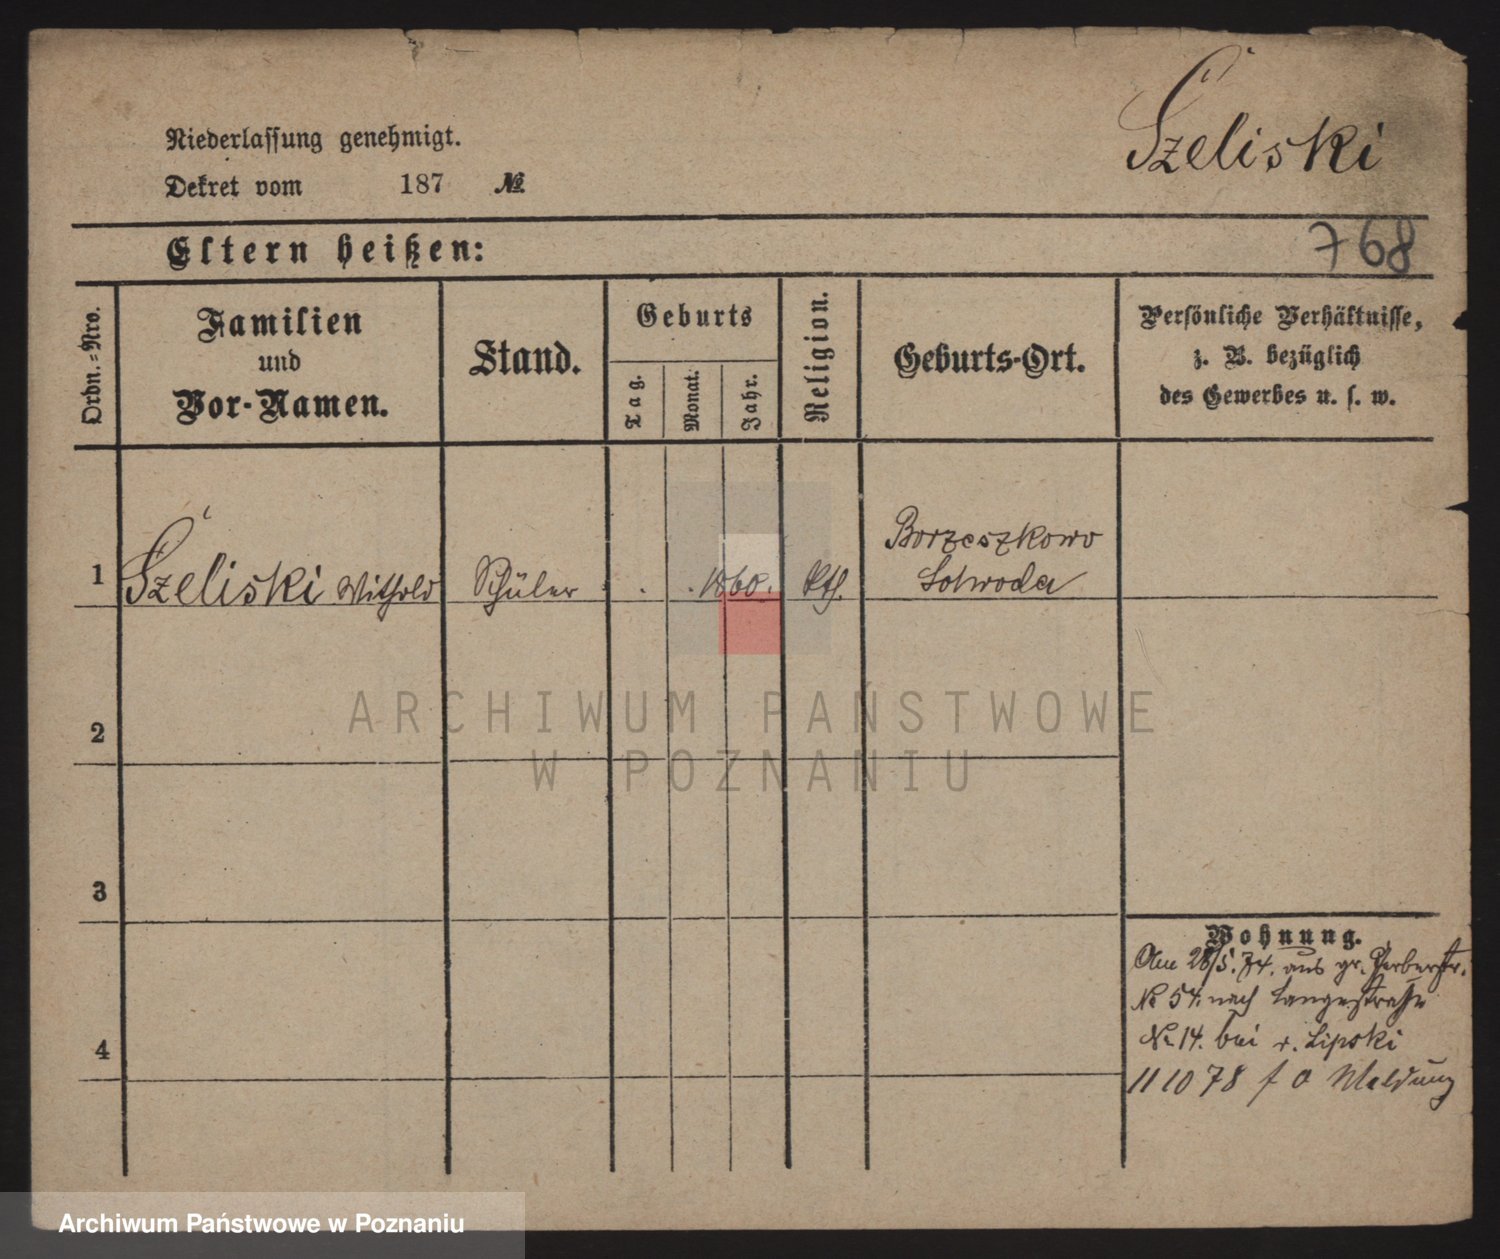 Szeliski
Niederlassung genehmigt.
Dekret vom 187 №
768
Eltern heißen:
Ordn.=Nro.
Familien
und
Vor-Namen.
Stand.
Geburts
Tag.
Monat.
Jahr.
Religion.
Geburts-Ort.
Persönliche Verhältnisse,
z. B. bezüglich
des Gewerbes u. s. w.
1 Szeliski Withold Schüler . . 1860. kth.
Borzeszkowo
2
3
4
Wohnung.
Am 28/5. 74. aus gr. Gerberstr.
№ 54. nach Langestraße
№ 14. bei v. Lipski
11 10 78 f o Meldung
ARCHIWUM PAŃSTWOWE
W POZNANIU
Archiwum Państwowe w Poznaniu